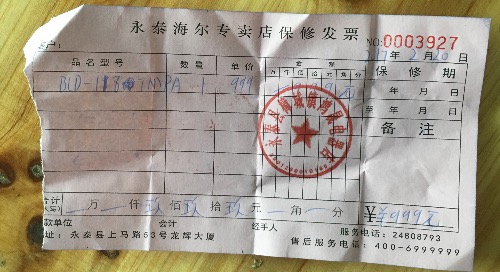 永泰海尔专卖店保修发票
户: NO:0003927
年2月20日
品名型号 数量 单价 金额 保修期
万仟佰拾元角分 年月日
1 999
年月日
备注
合计 万 仟玖佰玖拾玖元 角 分 ¥ ¥999元
款单位 会计 经手人 服务电话:24808793
址:永泰县上马路63号龙辉大厦 售后服务电话:400-6999999